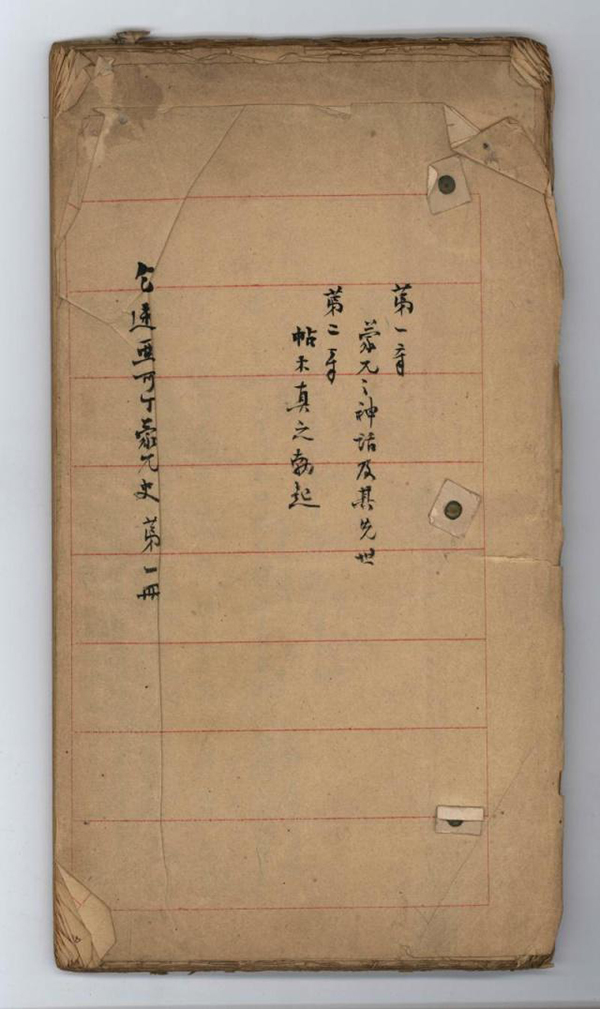 第一章
蒙兀之神話及其先世
第二章
帖木真之勃起
乞迷亞可丁蒙兀史 第一冊